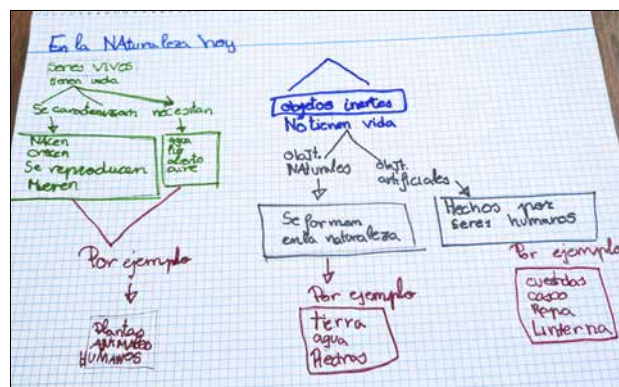 En la NAturaleza hoy
Seres vivos
tienen vida
Se caracterizan
necesitan
NAcen
crecen
Se reproducen
Mueren
agua
luz
aire
Por ejemplo
Plantas
ANIMALES
HUMANOS
objetos inertes
No tienen vida
objt.
NAturales
objt.
artificiales
Se forman
en la naturaleza
Hechos por
seres humanos
Por ejemplo
tierra
agua
Piedras
Por ejemplo
cuerdas
casco
Ropa
Linterna